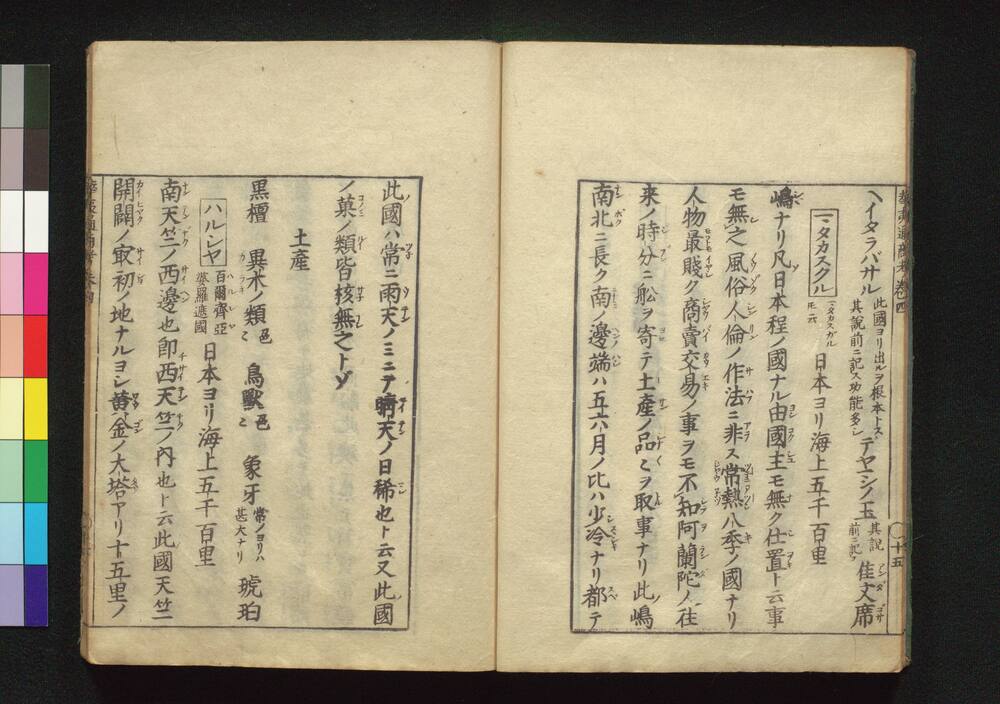 ヘイタラバサル 此國ヨリ出ルヲ根本トス其說前ニ記ス功能多シ テヤシノ玉 其說前ニ記ス 佳文席
マタカスクル マタカスガル 日本ヨリ海上五千百里
嶋ナリ凡日本程ノ國ナル由國主モ無ク仕置ト云事
モ無之風俗人倫ノ作法ニ非ス常熱八季ノ國ナリ
人物最賤ク商賣交易ノ事ヲモ不知阿蘭陀ノ往
来ノ時分ニ舩ヲ寄テ土産ノ品〻ヲ取事ナリ此嶋
南北ニ長ク南ノ邊端ハ五六月ノ比ハ少冷ナリ都テ
華夷通商考卷四
十五
此國ハ常ニ雨天ノミニテ晴天ノ日稀也ト云又此國
ノ菓ノ類皆核無之トゾ
土産
黒檀 異木ノ類色〻 鳥獸色〻 象牙 常ノヨリハ甚大ナリ 琥珀
ハルシヤ 百爾齊亞 婆羅遮國 日本ヨリ海上五千百里
南天竺ノ西邊也卽西天竺ノ内也ト云此國天竺
開闢ノ㝡初ノ地ナルヨシ黄金ノ大塔アリ十五里ノ